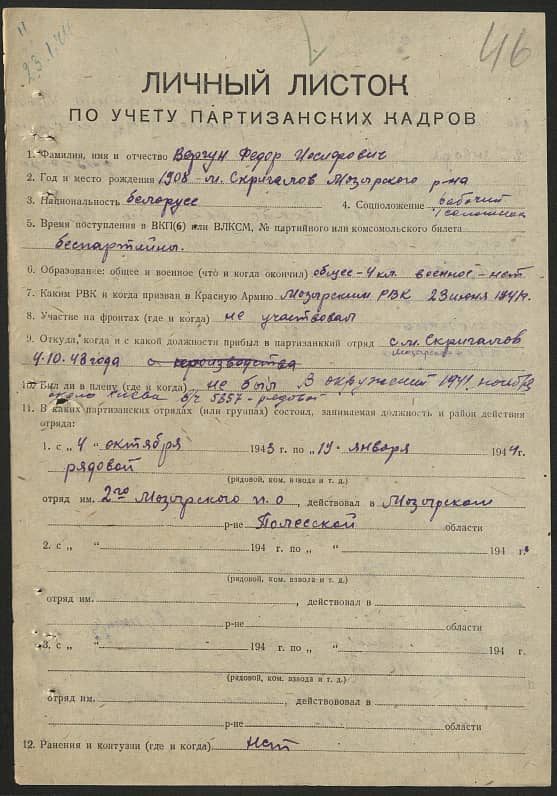 46
23.1.44
ЛИЧНЫЙ ЛИСТОК
ПО УЧЕТУ ПАРТИЗАНСКИХ КАДРОВ
1. Фамилия, имя и отчество Вергун Федор Иосифович
2. Год и место рождения 1908 - м. Скригалов Мозырского р-на
3. Национальность белорусс 4. Соцположение рабочий
5. Время поступления в ВКП(б) или ВЛКСМ, № партийного или комсомольского билета
беспартийный.
6. Образование: общее и военное (что и когда окончил) общее - 4 кл. военное - нет
7. Каким РВК и когда призван в Красную Армию Мозырским РВК 23 июня 1941 г.
8. Участие на фронтах (где и когда) не участвовал
9. Откуда, когда и с какой должности прибыл в партизанкий отряд с м. Скригалов
4.10.43 года с производства
10. Был ли в плену (где и когда) не был В окружений 1941 ноябрь
около Киева в/ч 5357 - рядовой
11. В каких партизанских отрядах (или группах) состоял, занимаемая должность и район действия
отряда:
1. с „4 “ октября 1943 г. по „14“ января 1944 г.
рядовой
(рядовой, ком. взвода и т. д.)
отряд им. 2го Мозырского п.о , действовал в Мозырском
р-не Полесской области
2. с „ “ 194 г. по „ “ 194 г.
(рядовой, ком. взвода и т. д.)
отряд им. , действовал в
р-не области
3. с „ “ 194 г. по „ “ 194 г.
(рядовой, ком. взвода и т. д.)
отряд им. , действововал в
р-не области
12. Ранения и контузии (где и когда) Нет